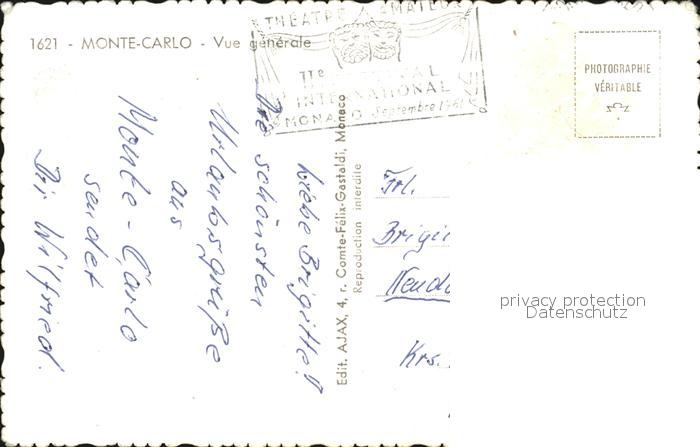 1621 - MONTE-CARLO - Vue générale
THÉATRE AMATEUR
IIe FESTIVAL
INTERNATIONAL
MONACO Septembre 1961
PHOTOGRAPHIE
VÉRITABLE
Liebe Brigitte!
Die schönsten
Urlaubsgrüße
aus
Monte-Carlo
sendet
Dir Wilfried.
Edit. AJAX, 4, r. Comte-Félix-Gastaldi, Monaco
Reproduction interdite
Frl.
Krs.
privacy protection
Datenschutz